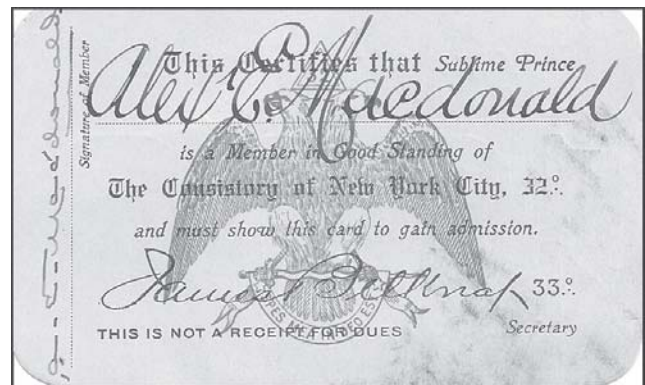 Macdonald
Signature of Member
This Certifies that Sublime Prince
Alex Macdonald
is a Member in Good Standing of
The Consistory of New York City, 32º.
and must show this card to gain admission.
James Belknap 33º.
SPES MEA IN DEO EST
THIS IS NOT A RECEIPT FOR DUES Secretary